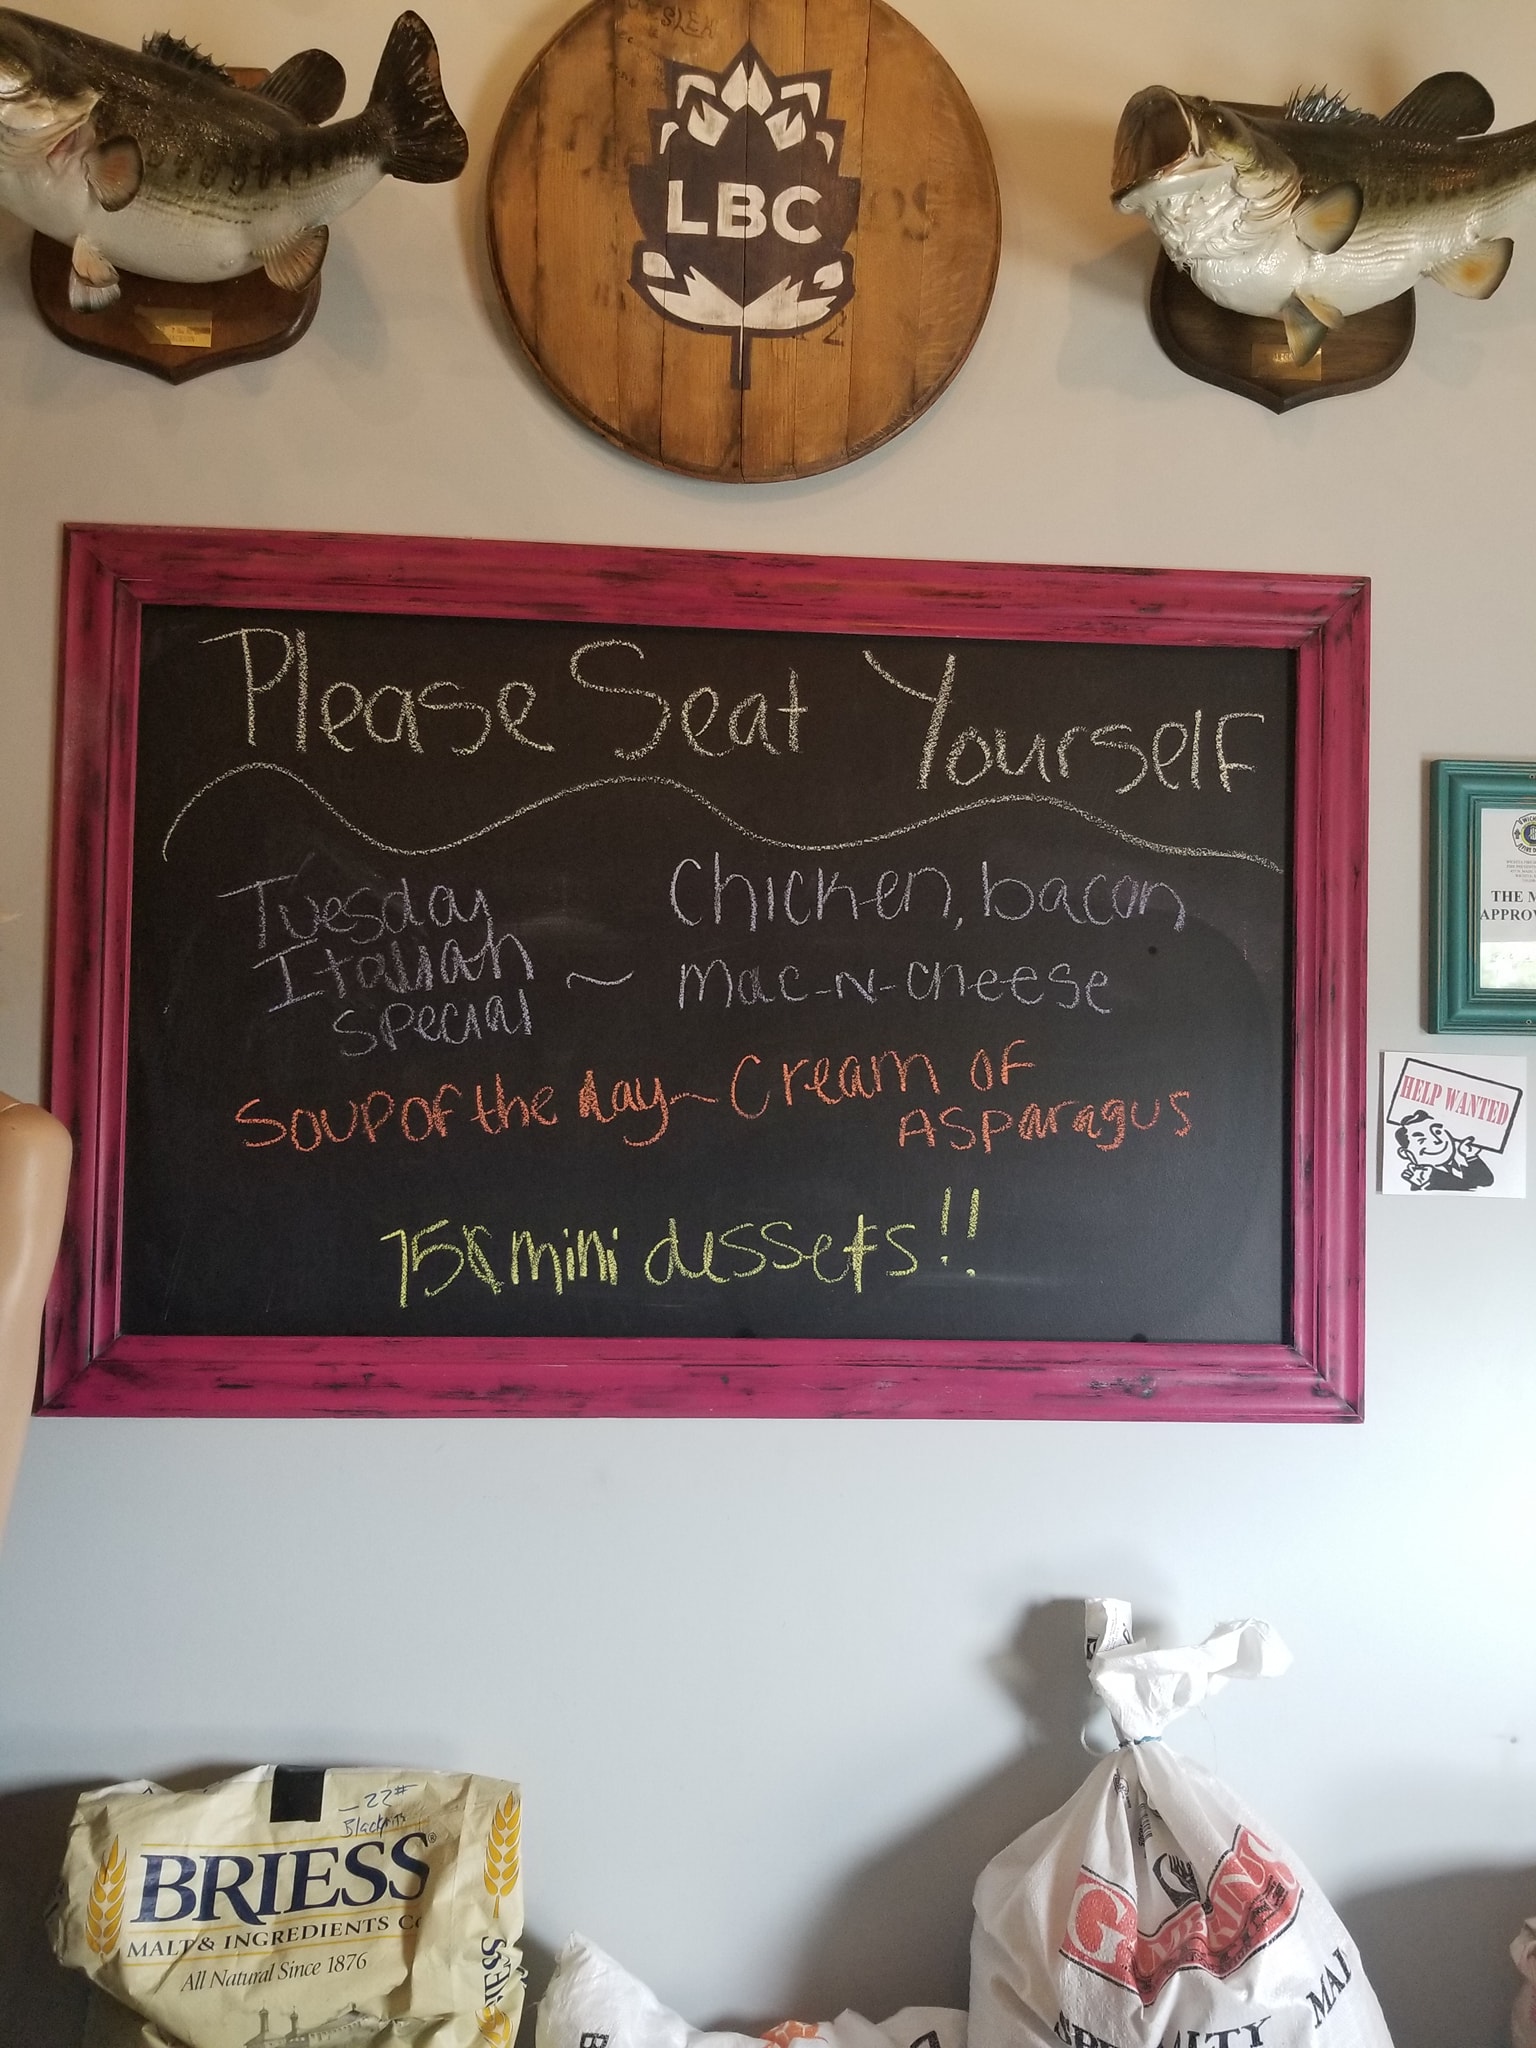 LBC
Please Seat Yourself
Tuesday
Italian
Special
~
Chicken, bacon
mac-n-cheese
Soup of the day ~ Cream of
Asparagus
75¢ mini dessets!!
THE M
APPROV
HELP WANTED
22#
BRIESS®
MALT & INGREDIENTS Co
All Natural Since 1876
SPECIALTY MAL